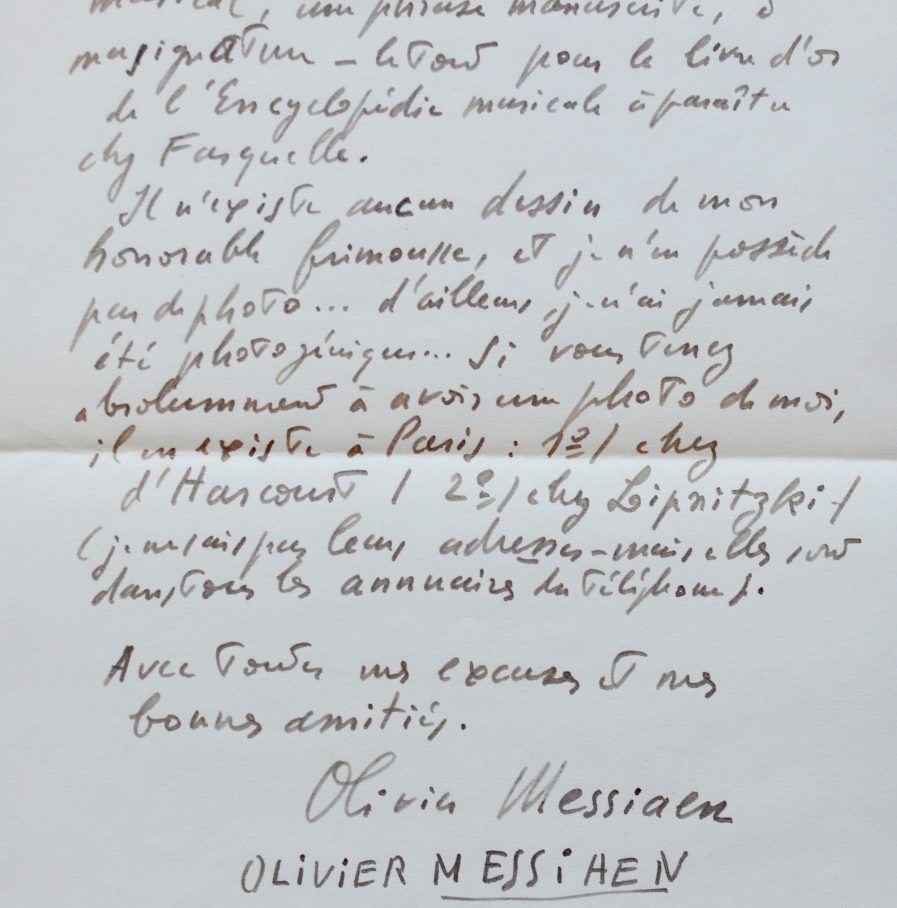 musical, une phrase manuscrite, &
ma signature – le tout pour le livre d'or
de l'Encyclopédie musicale à paraître
chez Fasquelle.
Il n'existe aucun dessin de mon
honorable frimousse, et je n'en possède
pas de photo... d'ailleurs, je n'ai jamais
été photogénique... Si vous tenez
absolumment à avoir une photo de moi,
il en existe à Paris : 1º/ chez
d'Harcourt / 2º/ chez Lipnitzki –/
(je ne sais pas leurs adresses – mais elles sont
dans tous les annuaires du téléphone).
Avec toutes mes excuses et mes
bonnes amitiés.
Olivier Messiaen
OLIViER MESSiAEN